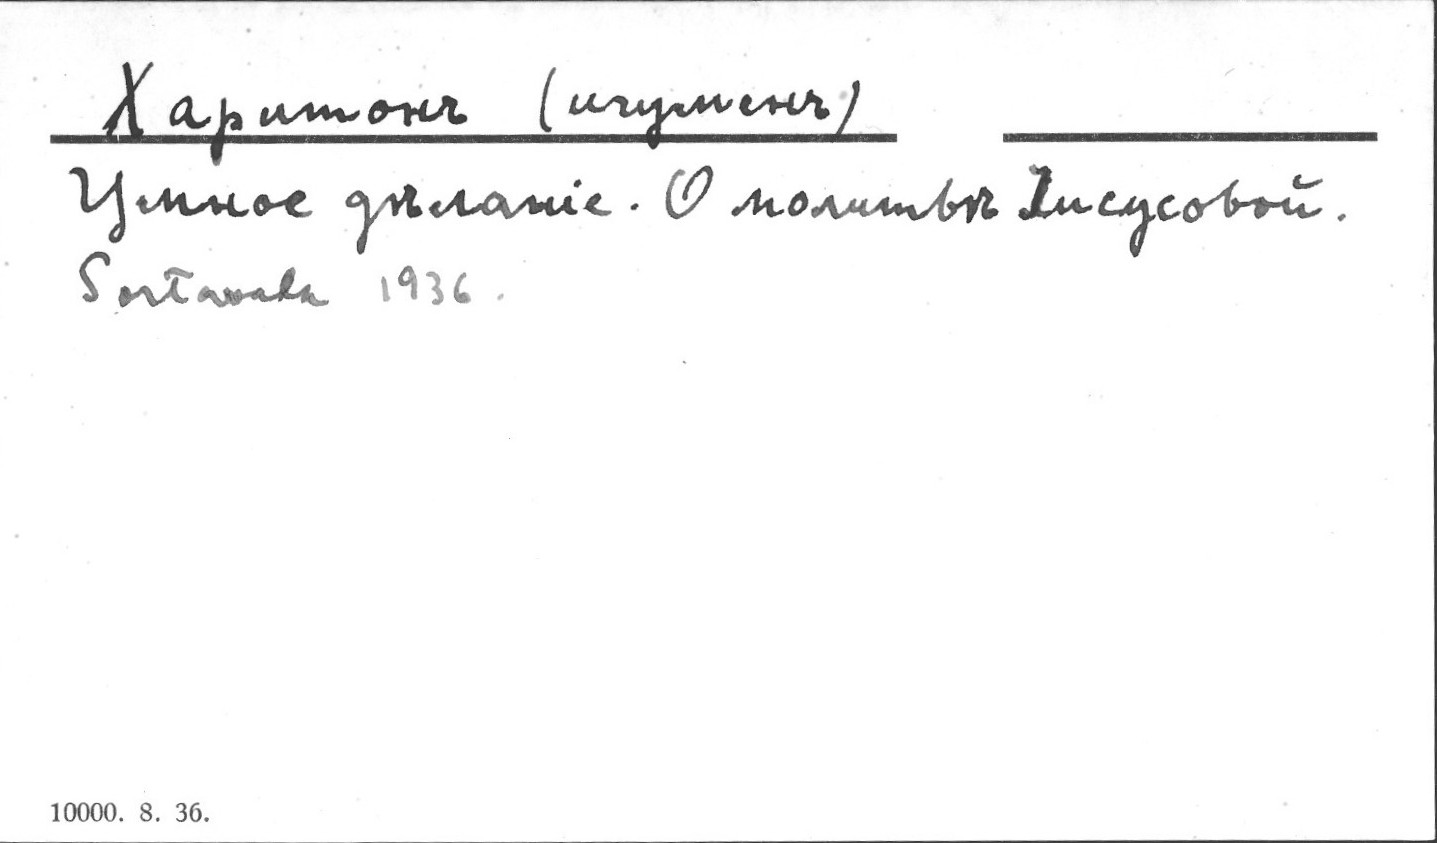 Харитонъ (игуменъ)
Умное дѣланіе. О молитвѣ Іисусовой.
Sortavala 1936.
10000. 8. 36.